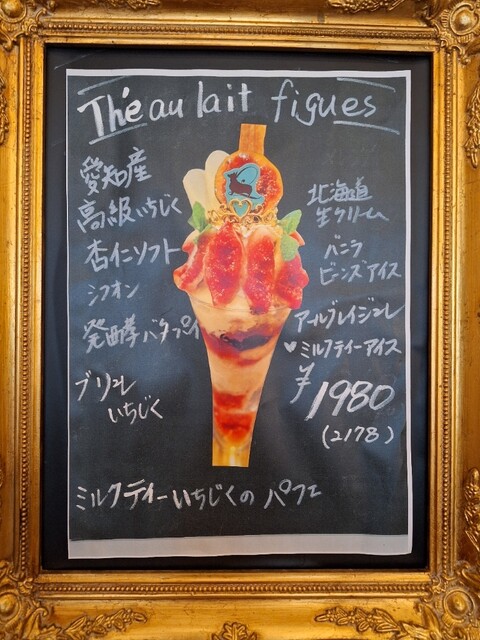 Thé au lait figues
愛知産
高級いちじく
杏仁ソフト
シフォン
発酵バタパイ
ブリュレ
いちじく
北海道
生クリーム
バニラ
ビーンズアイス
アールグレイジュレ
♥ミルクティーアイス
¥1980
(2178)
ミルクティーいちじくのパフェ